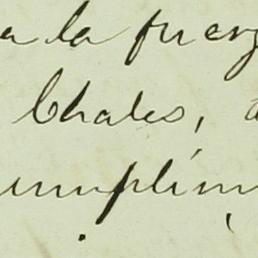 a la fuerz
Chales, a
umplim